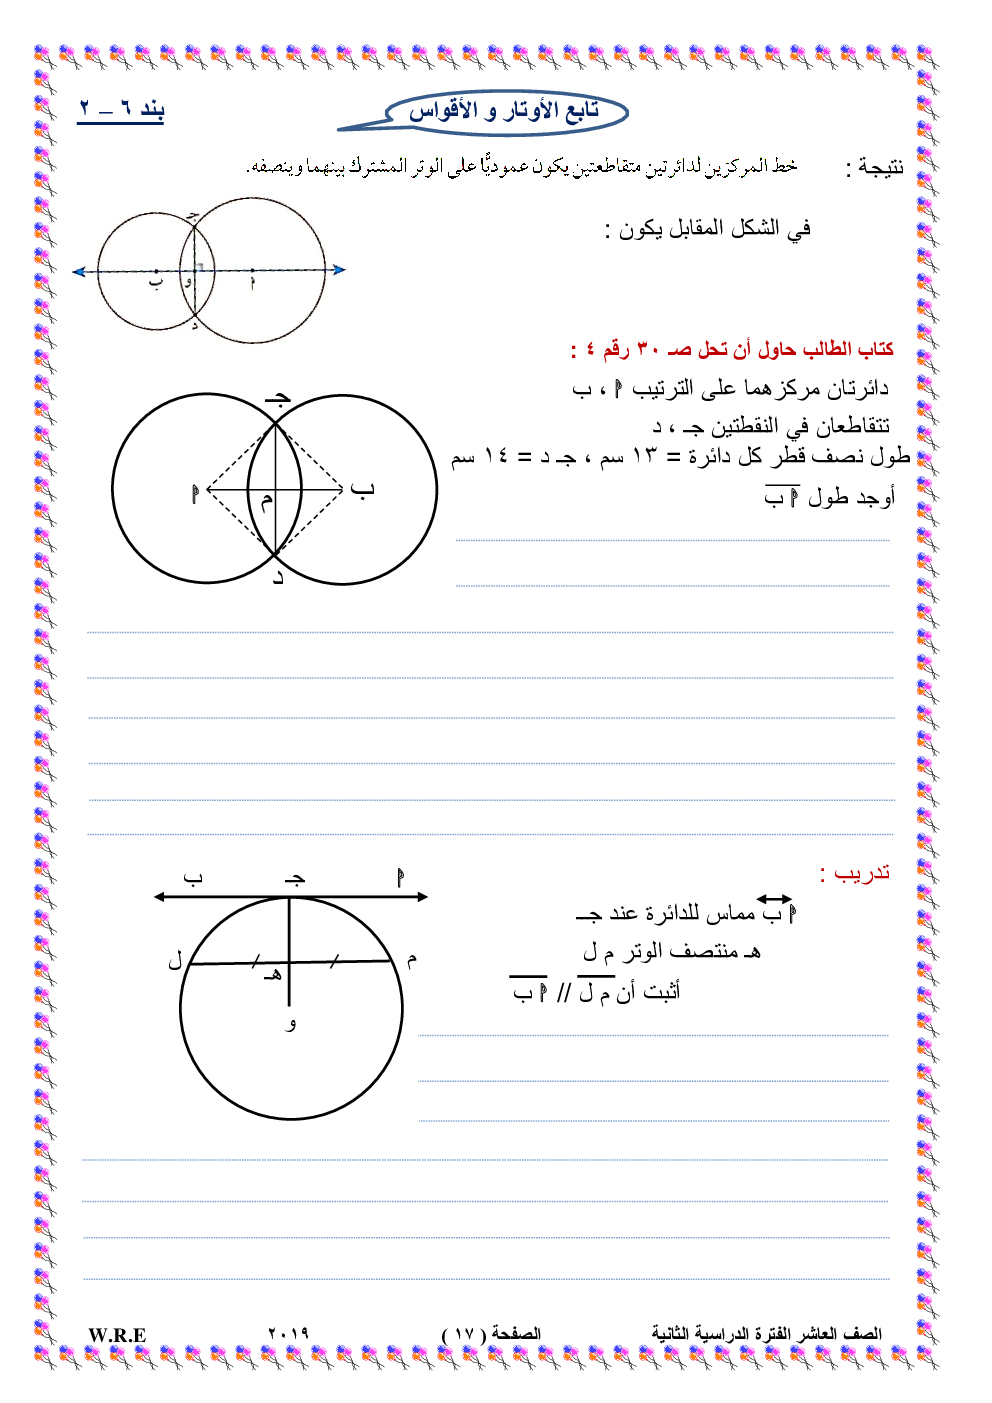 تابع الأوتار و الأقواس
بند ٦ – ٢
نتيجة : خط المركزين لدائرتين متقاطعتين يكون عموديًّا على الوتر المشترك بينهما وينصفه.
في الشكل المقابل يكون :
جـ
ب
و
أ
د
كتاب الطالب حاول أن تحل صـ ٣٠ رقم ٤ :
دائرتان مركزهما على الترتيب أ ، ب
تتقاطعان في النقطتين جـ ، د
طول نصف قطر كل دائرة = ١٣ سم ، جـ د = ١٤ سم
أوجد طول أ ب
جـ
أ
م
ب
د
تدريب :
أ ب مماس للدائرة عند جـ
هـ منتصف الوتر م ل
أثبت أن م ل // أ ب
أ
جـ
ب
م
ل
هـ
و
الصف العاشر الفترة الدراسية الثانية
الصفحة ( ١٧ )
٢٠١٩
W.R.E